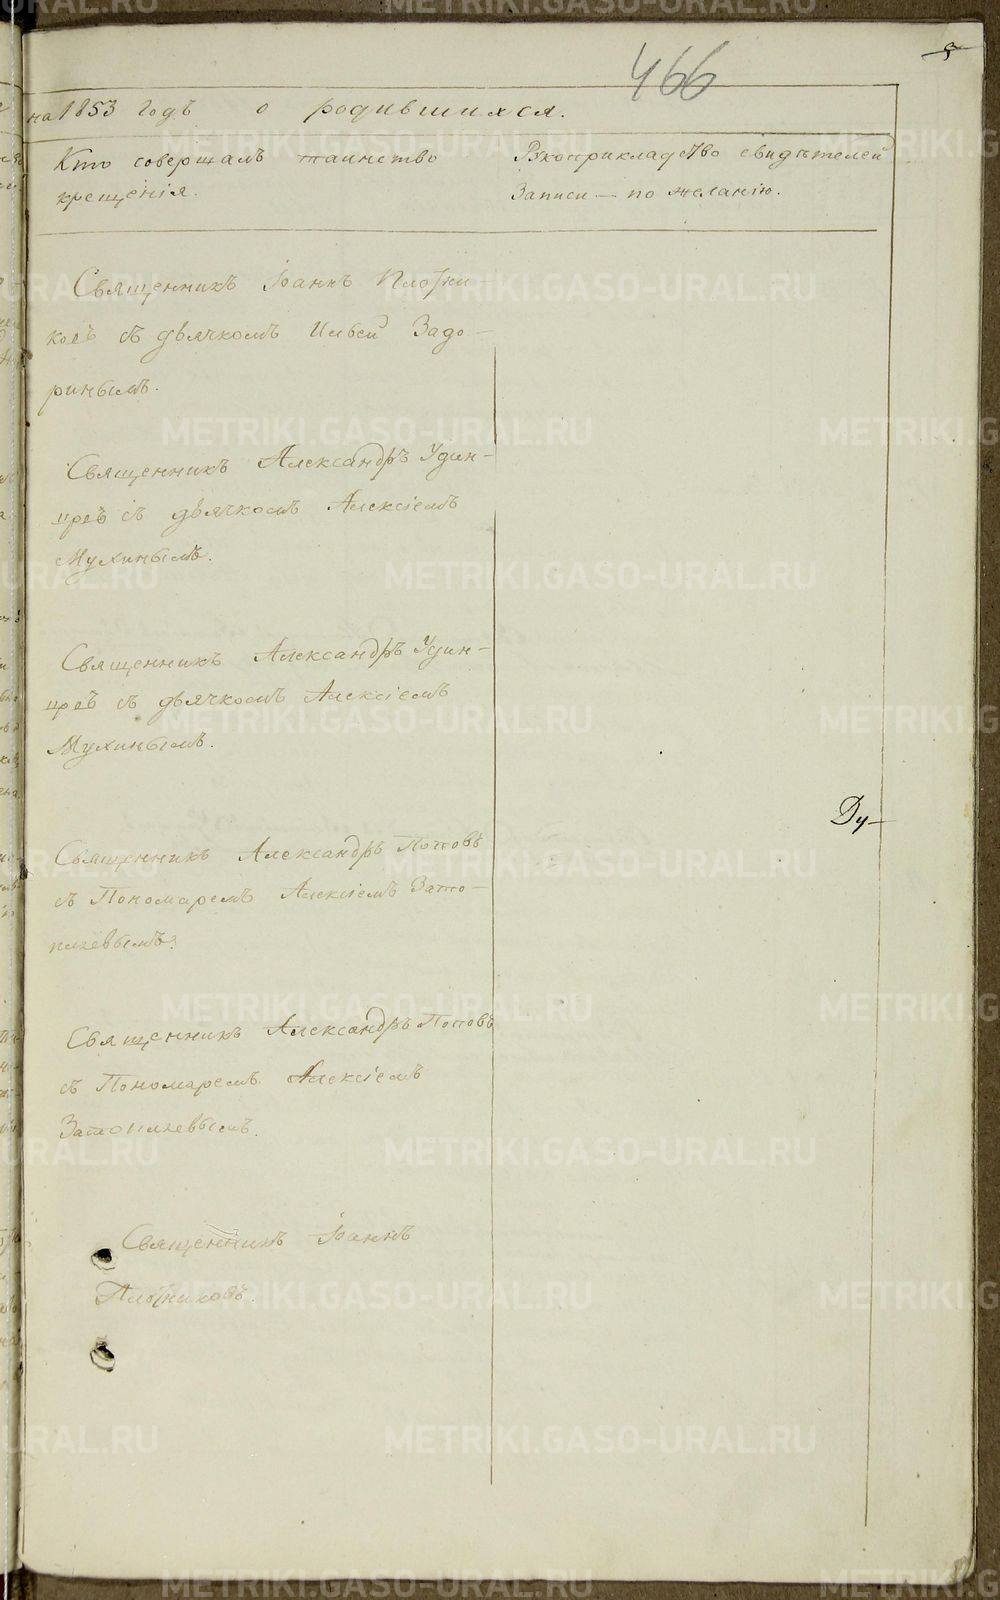 466
5
на 1853 годъ о родившихся.
Кто совершалъ таинство
крещенія.
Рукоприкладство свидѣтелей
записи — по желанію.
Священникъ Іоаннъ Плотни-
ковъ съ дьячкомъ Ильей Задо-
ринымъ.
Священникъ Александръ Удин-
цревъ съ дьячкомъ Алексіемъ
Мухинымъ.
Священникъ Александръ Удин-
превъ съ дьячкомъ Алексіемъ
Мухинымъ.
Ду-
Священникъ Александръ Поповъ
съ Пономаремъ Алексіемъ Зато-
пляевымъ.
Священникъ Александръ Поповъ
съ Пономаремъ Алексіемъ
Затопляевымъ.
Священникъ Іоаннъ
Плотниковъ.
METRIKI.GASO-URAL.RU